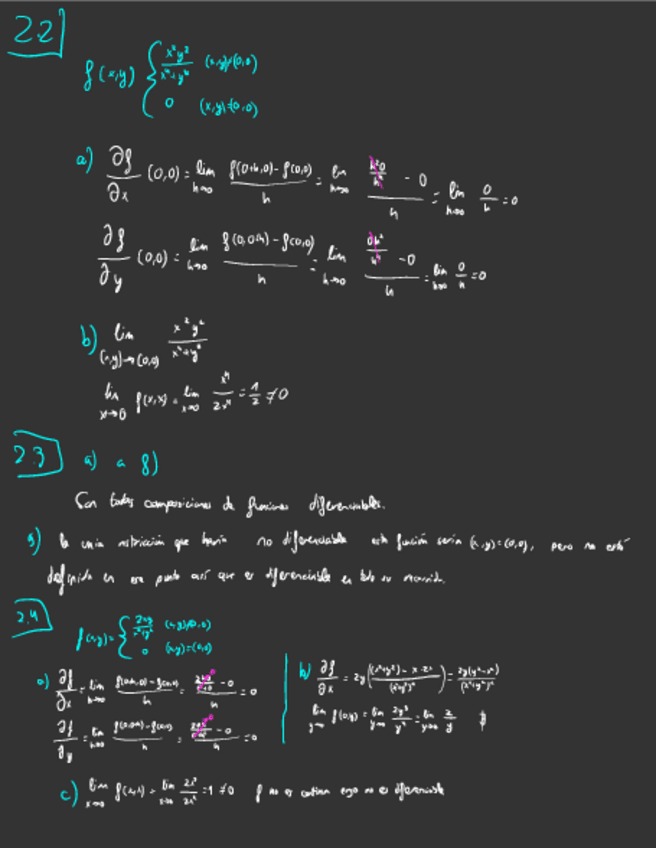 2.2
f(x,y) { x²y²/x⁴+y⁴ (x,y)≠(0,0)
0 (x,y)=(0,0)
a) ∂f/∂x (0,0) = lim h→0 f(0+h,0)-f(0,0)/h = lim h→0 h²0/h⁴ - 0/h = lim h→0 0/h = 0
∂f/∂y (0,0) = lim h→0 f(0,0+h)-f(0,0)/h = lim h→0 0h²/h⁴ - 0/h = lim h→0 0/h = 0
b) lim (x,y)→(0,0) x²y²/x⁴+y⁴
lim x→0 f(x,x) = lim x→0 x⁴/2x⁴ = 1/2 ≠ 0
2.3 a) a f)
Son todas composiciones de funciones diferenciables.
g) la restricción que haría no diferenciable esta función sería (x,y)=(0,0), pero no está
definida en ese punto así que es diferenciable en todo su
2.4
f(x,y) = { 2xy/x²+y² (x,y)≠(0,0)
0 (x,y)=(0,0)
a) ∂f/∂x = lim h→0 f(0+h,0)-f(0,0)/h = - 0/h = 0
∂f/∂y = lim h→0 f(0,0+h)-f(0,0)/h = - 0/h = 0
b) ∂f/∂x = 2y((x²+y²) - x·2x/(x²+y²)²) = 2y(y²-x²)/(x²+y²)²
lim y→0 f(0,y) = lim y→0 2y³/y⁴ = lim y→0 2/y ∄
c) lim x→0 f(x,x) = lim x→0 2x²/2x² = 1 ≠ 0 f no es continua ergo no es diferenciable